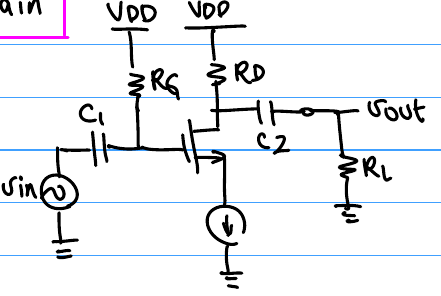 ain
VDD VDD
RG RD
C1
C2
vout
vin
RL